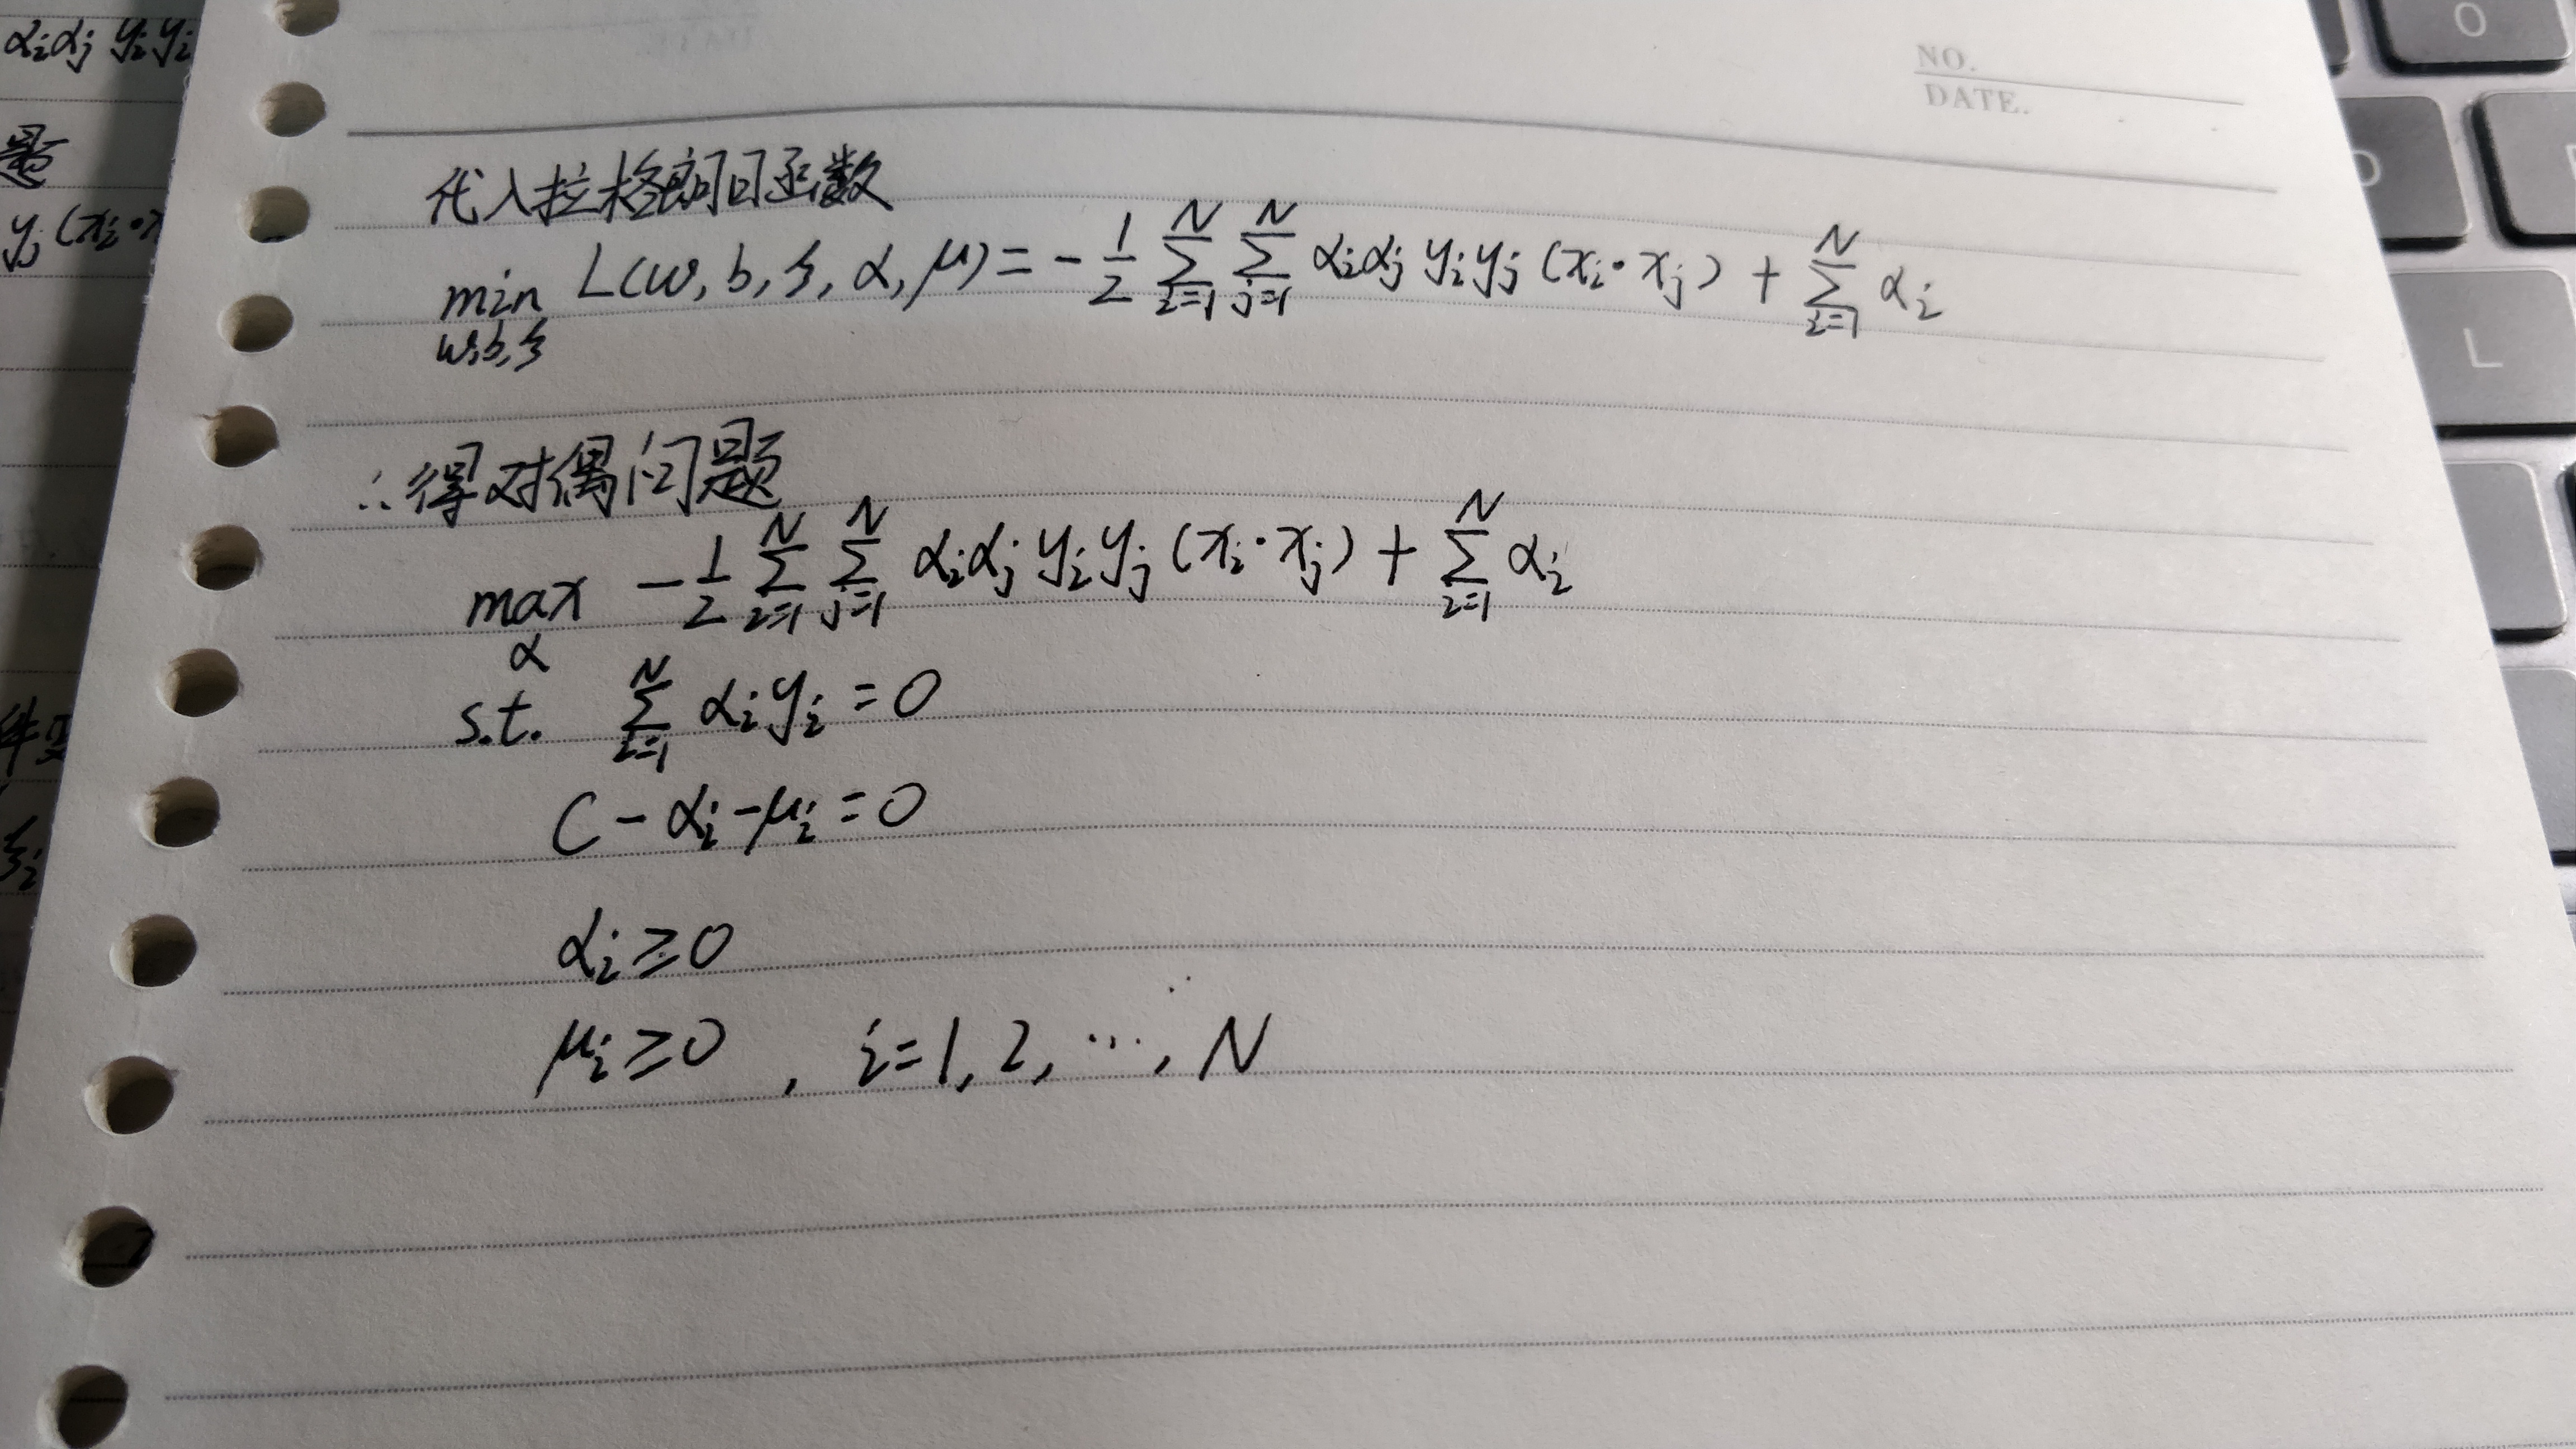 αiαj yiyj
题
yj(xi·x
NO.
DATE.
代入拉格朗日函数
min L(w, b, ξ, α, μ) = - 1/2 ∑_{i=1}^{N} ∑_{j=1}^{N} αiαj yiyj (xi·xj) + ∑_{i=1}^{N} αi
w,b,ξ
∴得对偶问题
max - 1/2 ∑_{i=1}^{N} ∑_{j=1}^{N} αiαj yiyj (xi·xj) + ∑_{i=1}^{N} αi
α
s.t. ∑_{i=1}^{N} αiyi = 0
C - αi - μi = 0
αi ≥ 0
μi ≥ 0 , i=1, 2, ⋯, N
件
ξi
O
L